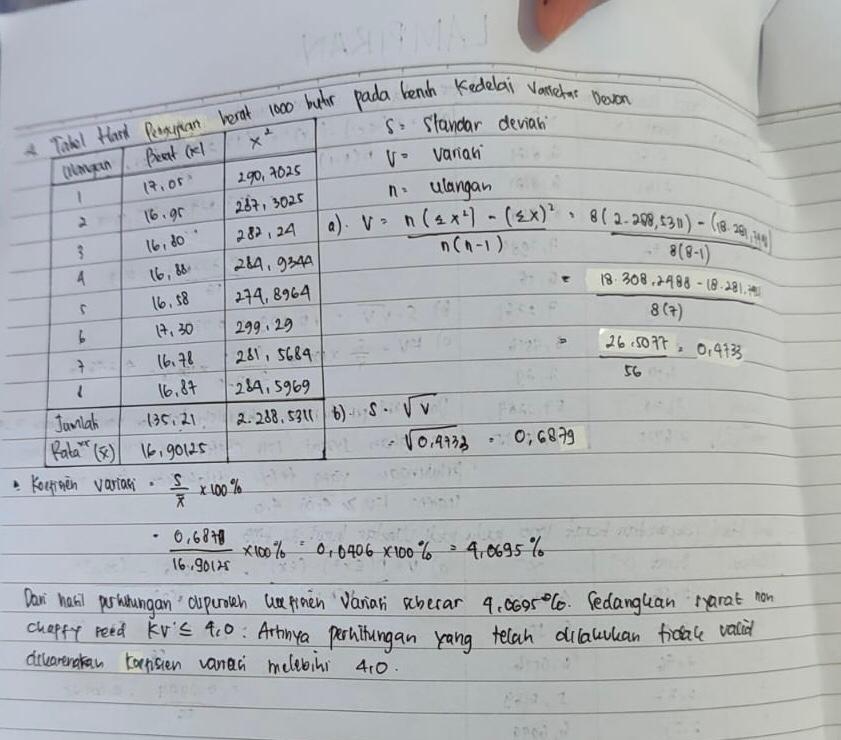 Tabel Hasil Pengujian berat 1000 butir pada benih Kedelai Varietas Devon
Ulangan Berat (x) x²
1 17,05 290,7025
2 16,95 287,3025
3 16,80 282,24
4 16,88 284,9344
5 16,58 274,8964
6 17,30 299,29
7 16,78 281,5684
8 16,87 284,5969
Jumlah 135,21 2.288,5311
Rata²" (x̄) 16,90125
S = Standar deviasi
V = Variasi
n = ulangan
a). V = n (Σx²) - (Σx)² = 8 (2.288,5311) - (18.281,
n(n-1) 8(8-1)
= 18.308,2488 - 18.281,
8(7)
= 26.5077 = 0,4733
56
b). S = √V
= √0,4733 = 0,6879
Koefisien variasi = S/x̄ x 100%
= 0,6879/16,90125 x100% = 0,0406 x100% = 4,0695%
Dari hasil perhitungan diperoleh koefisien Variasi sebesar 4,0695%. Sedangkan syarat non
chaffy seed KV ≤ 4,0. Artinya perhitungan yang telah dilakukan tidak valid
dikarenakan koefisien variasi melebihi 4,0.